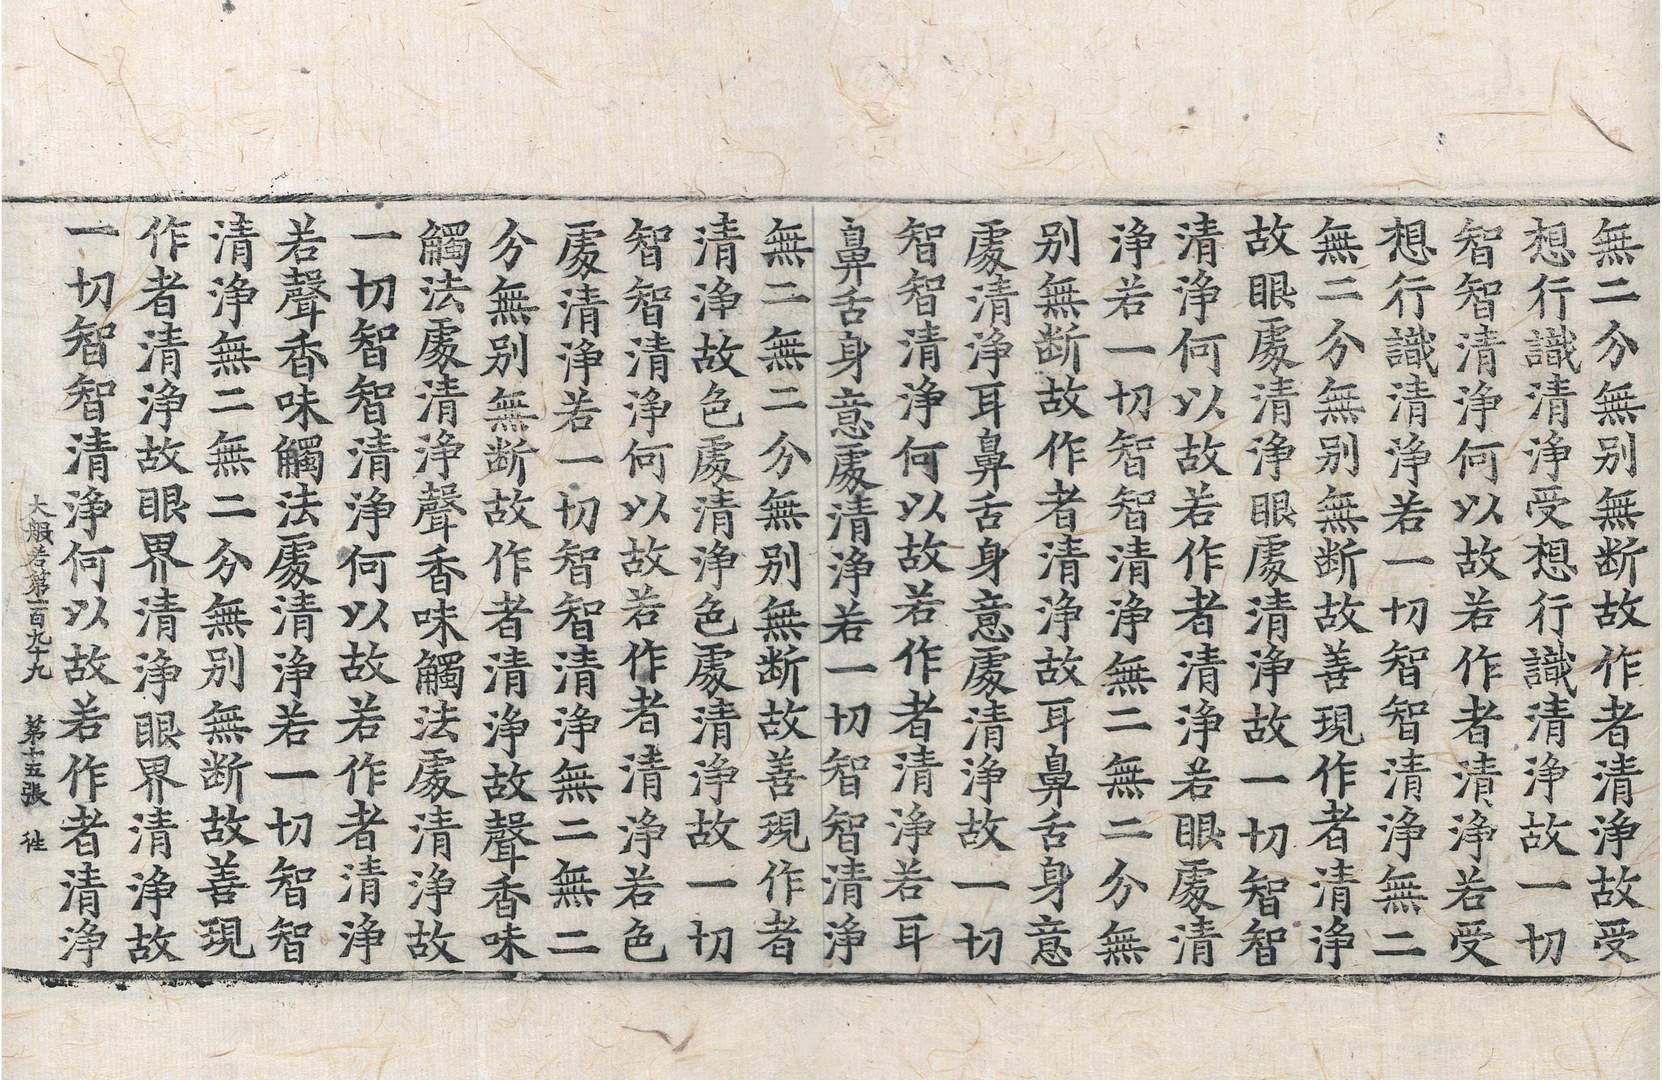 無二分無别無断故作者清淨故受
想行識清淨受想行識清淨故一切
智智清淨何以故若作者清淨若受
想行識清淨若一切智智清淨無二
無二分無别無断故善現作者清淨
故眼處清淨眼處清淨故一切智智
清淨何以故若作者清淨若眼處清
淨若一切智智清淨無二無二分無
别無断故作者清淨故耳鼻舌身意
處清淨耳鼻舌身意處清淨故一切
智智清淨何以故若作者清淨若耳
鼻舌身意處清淨若一切智智清淨
無二無二分無别無断故善現作者
清淨故色處清淨色處清淨故一切
智智清淨何以故若作者清淨若色
處清淨若一切智智清淨無二無二
分無别無断故作者清淨故聲香味
觸法處清淨聲香味觸法處清淨故
一切智智清淨何以故若作者清淨
若聲香味觸法處清淨若一切智智
清淨無二無二分無别無断故善現
作者清淨故眼界清淨眼界清淨故
一切智智清淨何以故若作者清淨
大般若第一百九十九 第十五張 徃